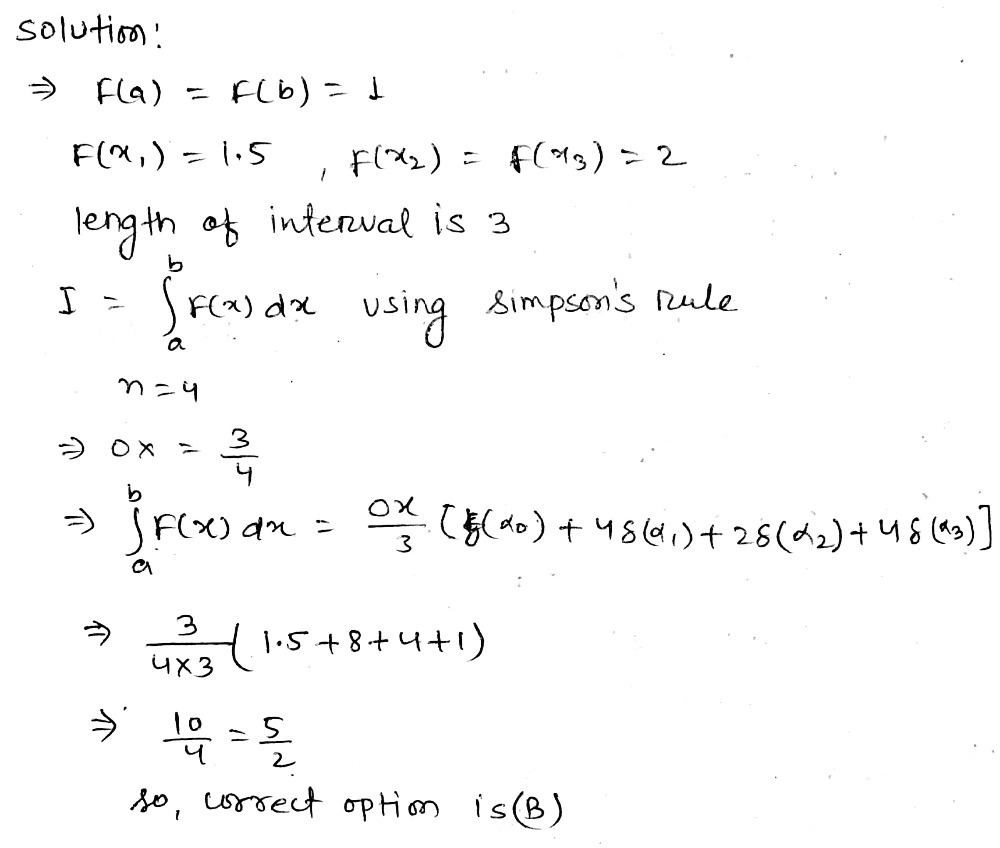 solution:
⇒ F(a) = F(b) = 1
F(x₁) = 1.5 , F(x₂) = f(x₃) = 2
length of interval is 3
I = ∫ₐᵇ F(x) dx using simpson's rule
n = 4
⇒ 0x = 3/4
⇒ ∫ₐᵇ F(x) dx = 0x/3 [f(α₀) + 4δ(α₁) + 2δ(α₂) + 4δ(α₃)]
⇒ 3/4×3 (1.5 + 8 + 4 + 1)
⇒ 10/4 = 5/2
so, correct option is (B)